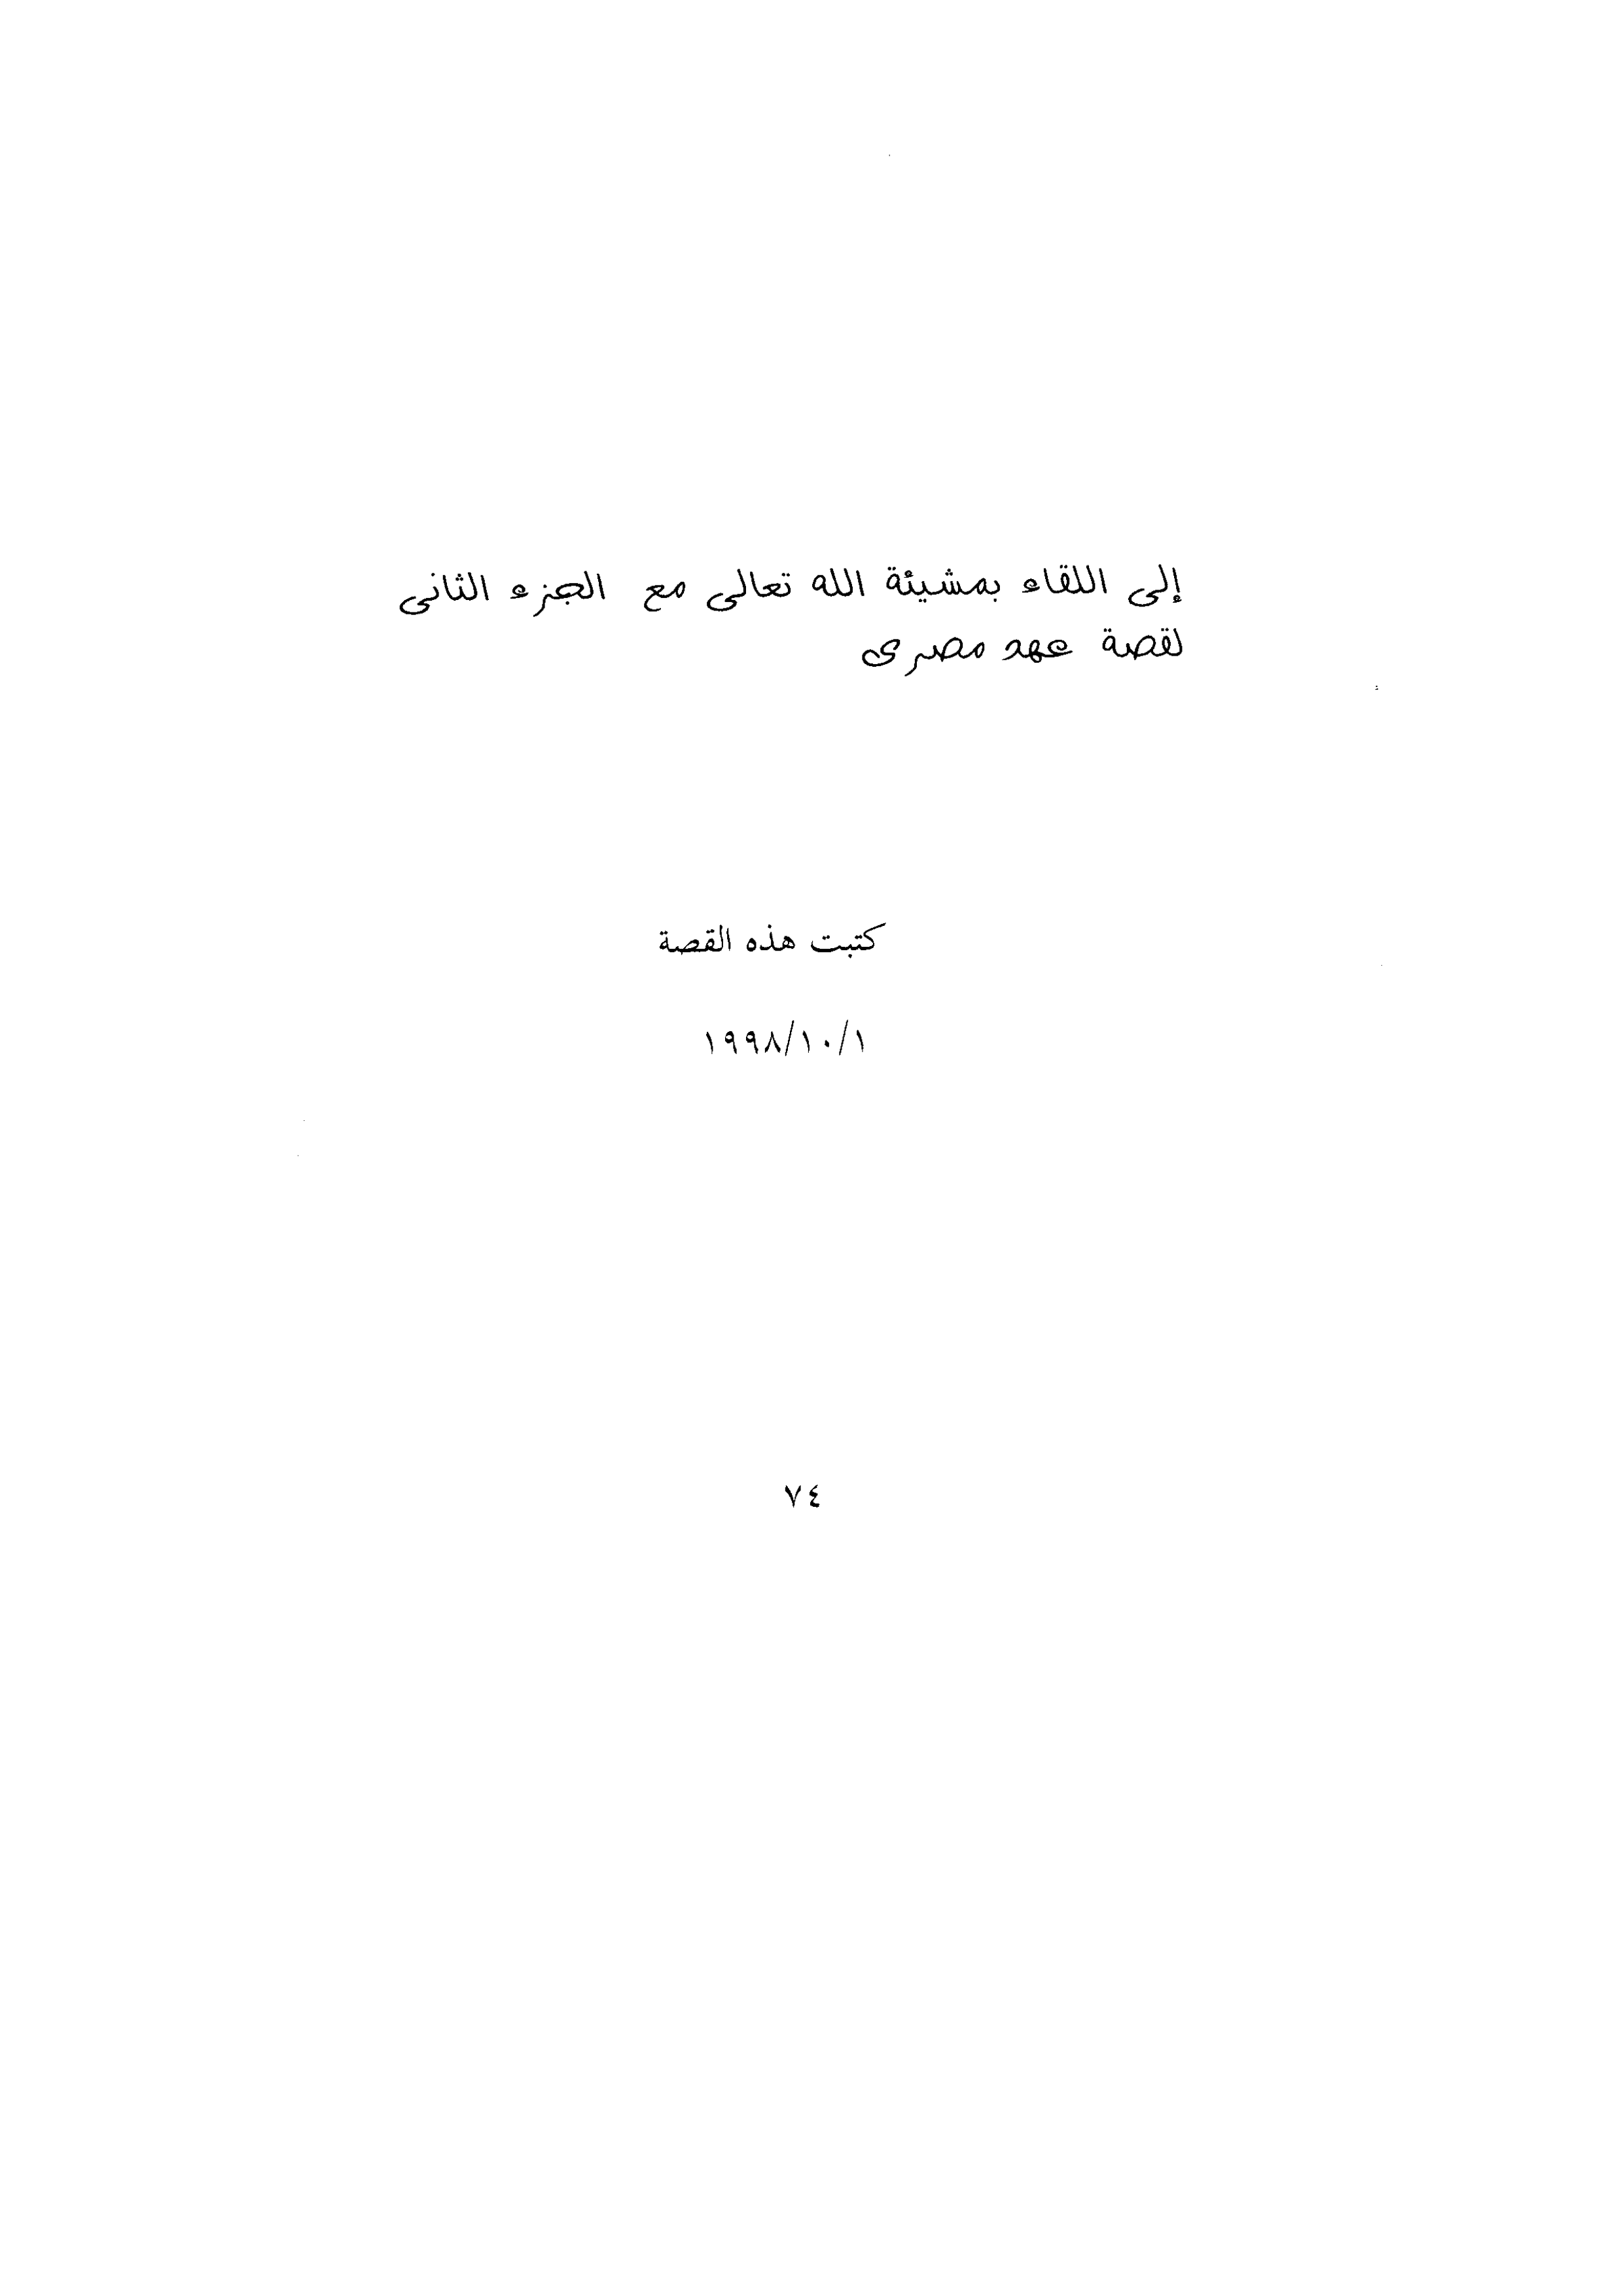 إلى اللقاء بمشيئة الله تعالى مع الجزء الثانى
لقصة عهد مصرى
كتبت هذه القصة
١٩٩٨/١٠/١
٧٤